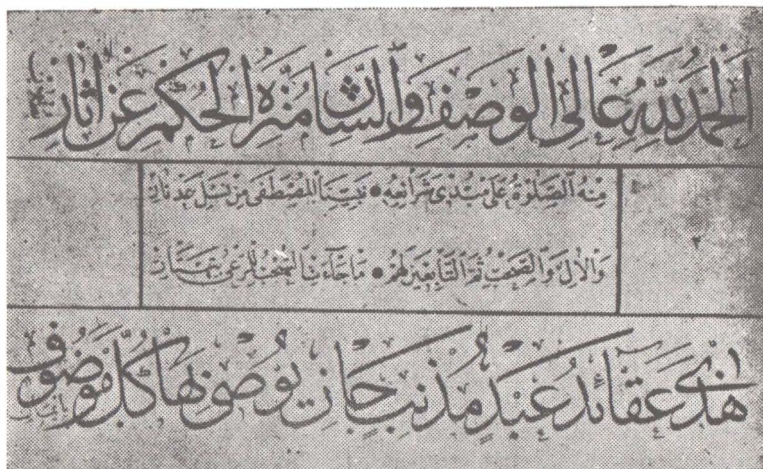 اَلْحَمْدُ لِلّٰهِ عَالِى الْوَصْفِ وَالشَّانِ مُنَزَّهِ الْحُكْمِ عَنْ اٰثَارِ بطلان
مِنْهُ الصَّلٰوةُ عَلٰى مُبْدِى شَرَائِعِهِ • نَبِيِّنَا الْمُصْطَفٰى مِنْ نَسْلِ عَدْنَانِ
٢
وَالْاٰلِ وَالصَّحْبِ ثُمَّ التَّابِعِينَ لَهُمْ • مَا جَاءَتِ السُّحْبُ لِلرَّعْىِ بِتَهْتَانِ
هٰذِى عَقَائِدُ عَبْدٍ مُذْنِبٍ جَانٍ يُوصِى بِهَا كُلَّ مَوْصُوفٍ بايمان